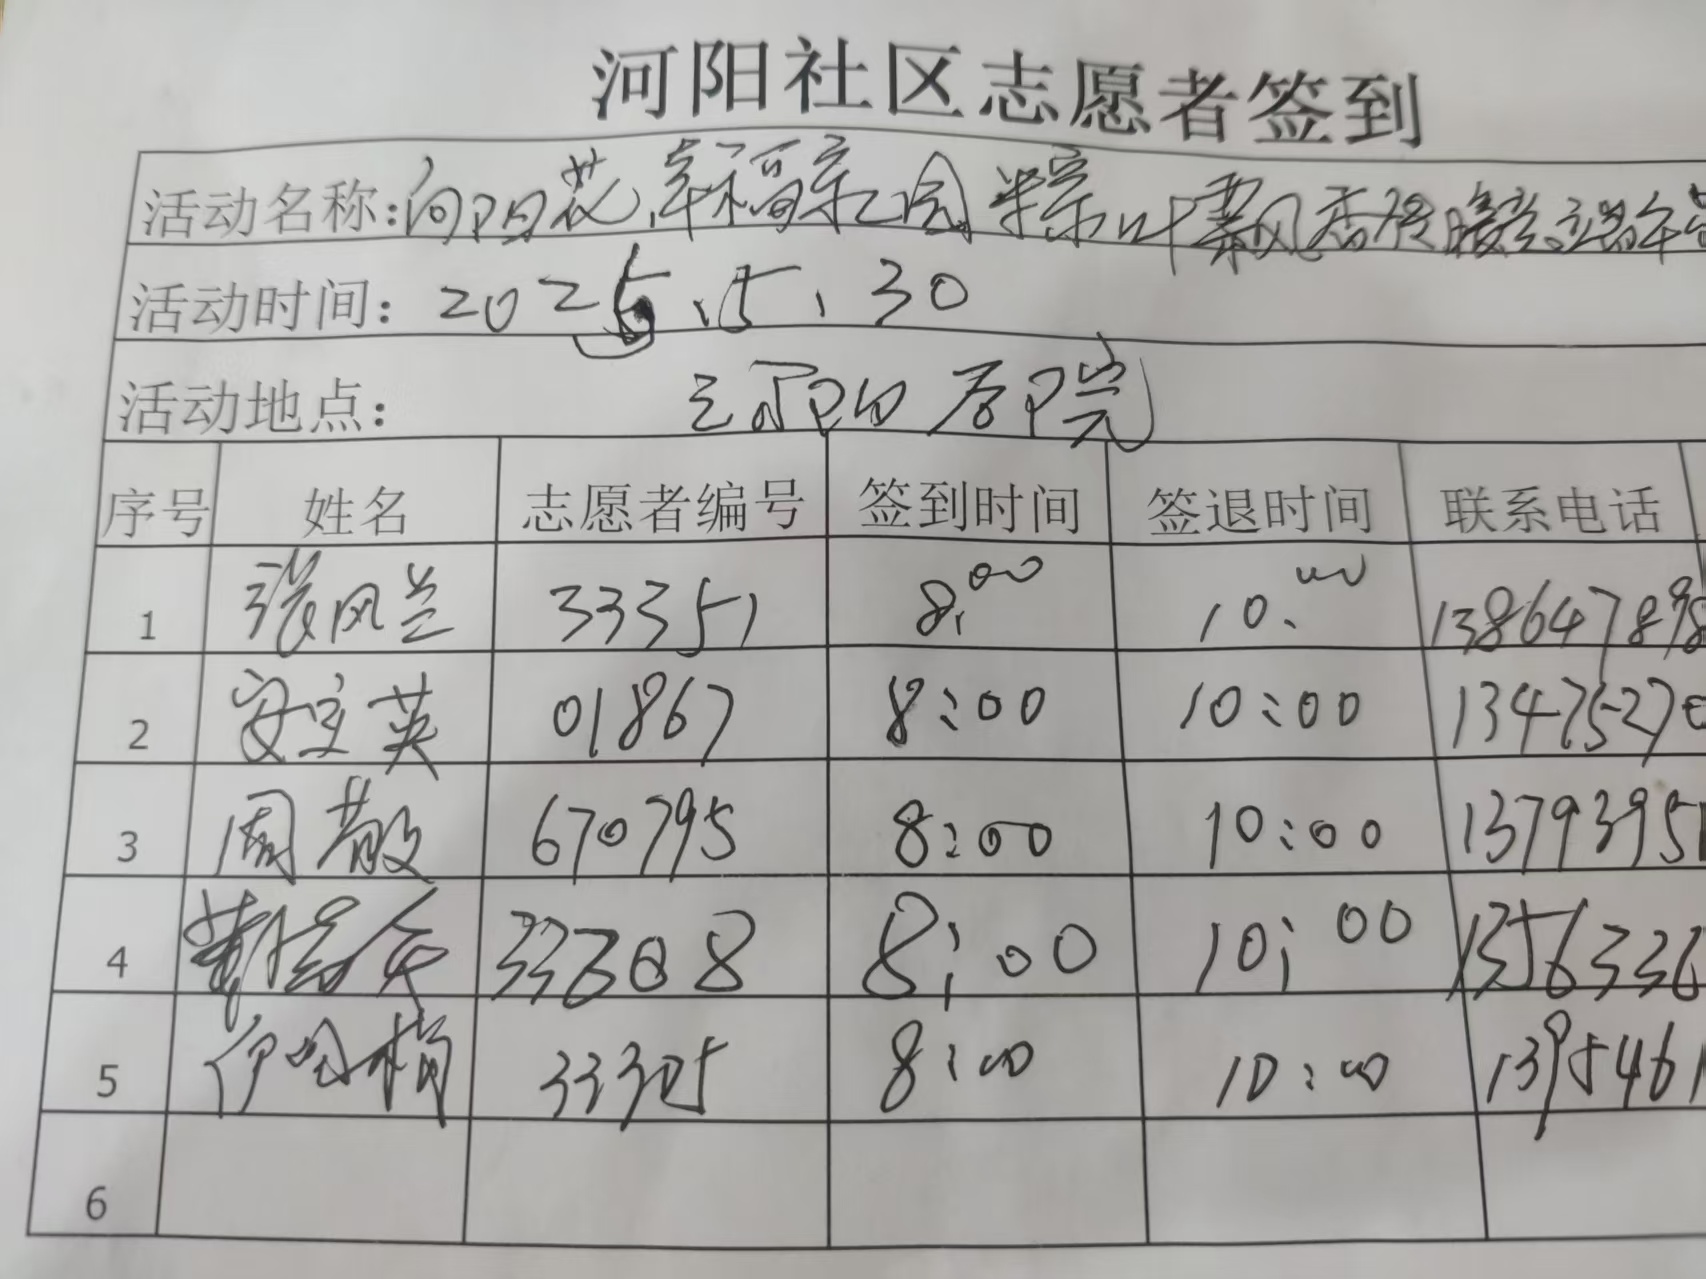 河阳社区志愿者签到
活动名称:向阳花.幸福家园粽叶飘香浸暖益.端午
活动时间: 2025.5.30
活动地点: 河阳居院
序号 姓名 志愿者编号 签到时间 签退时间 联系电话
1 张风兰 33351 8:00 10:00 138647898
2 安立英 01867 8:00 10:00 13475270
3 周散 670795 8:00 10:00 1379395
4 33308 8:00 10:00 1356336
5 伊 33305 8:00 10:00 1395461
6